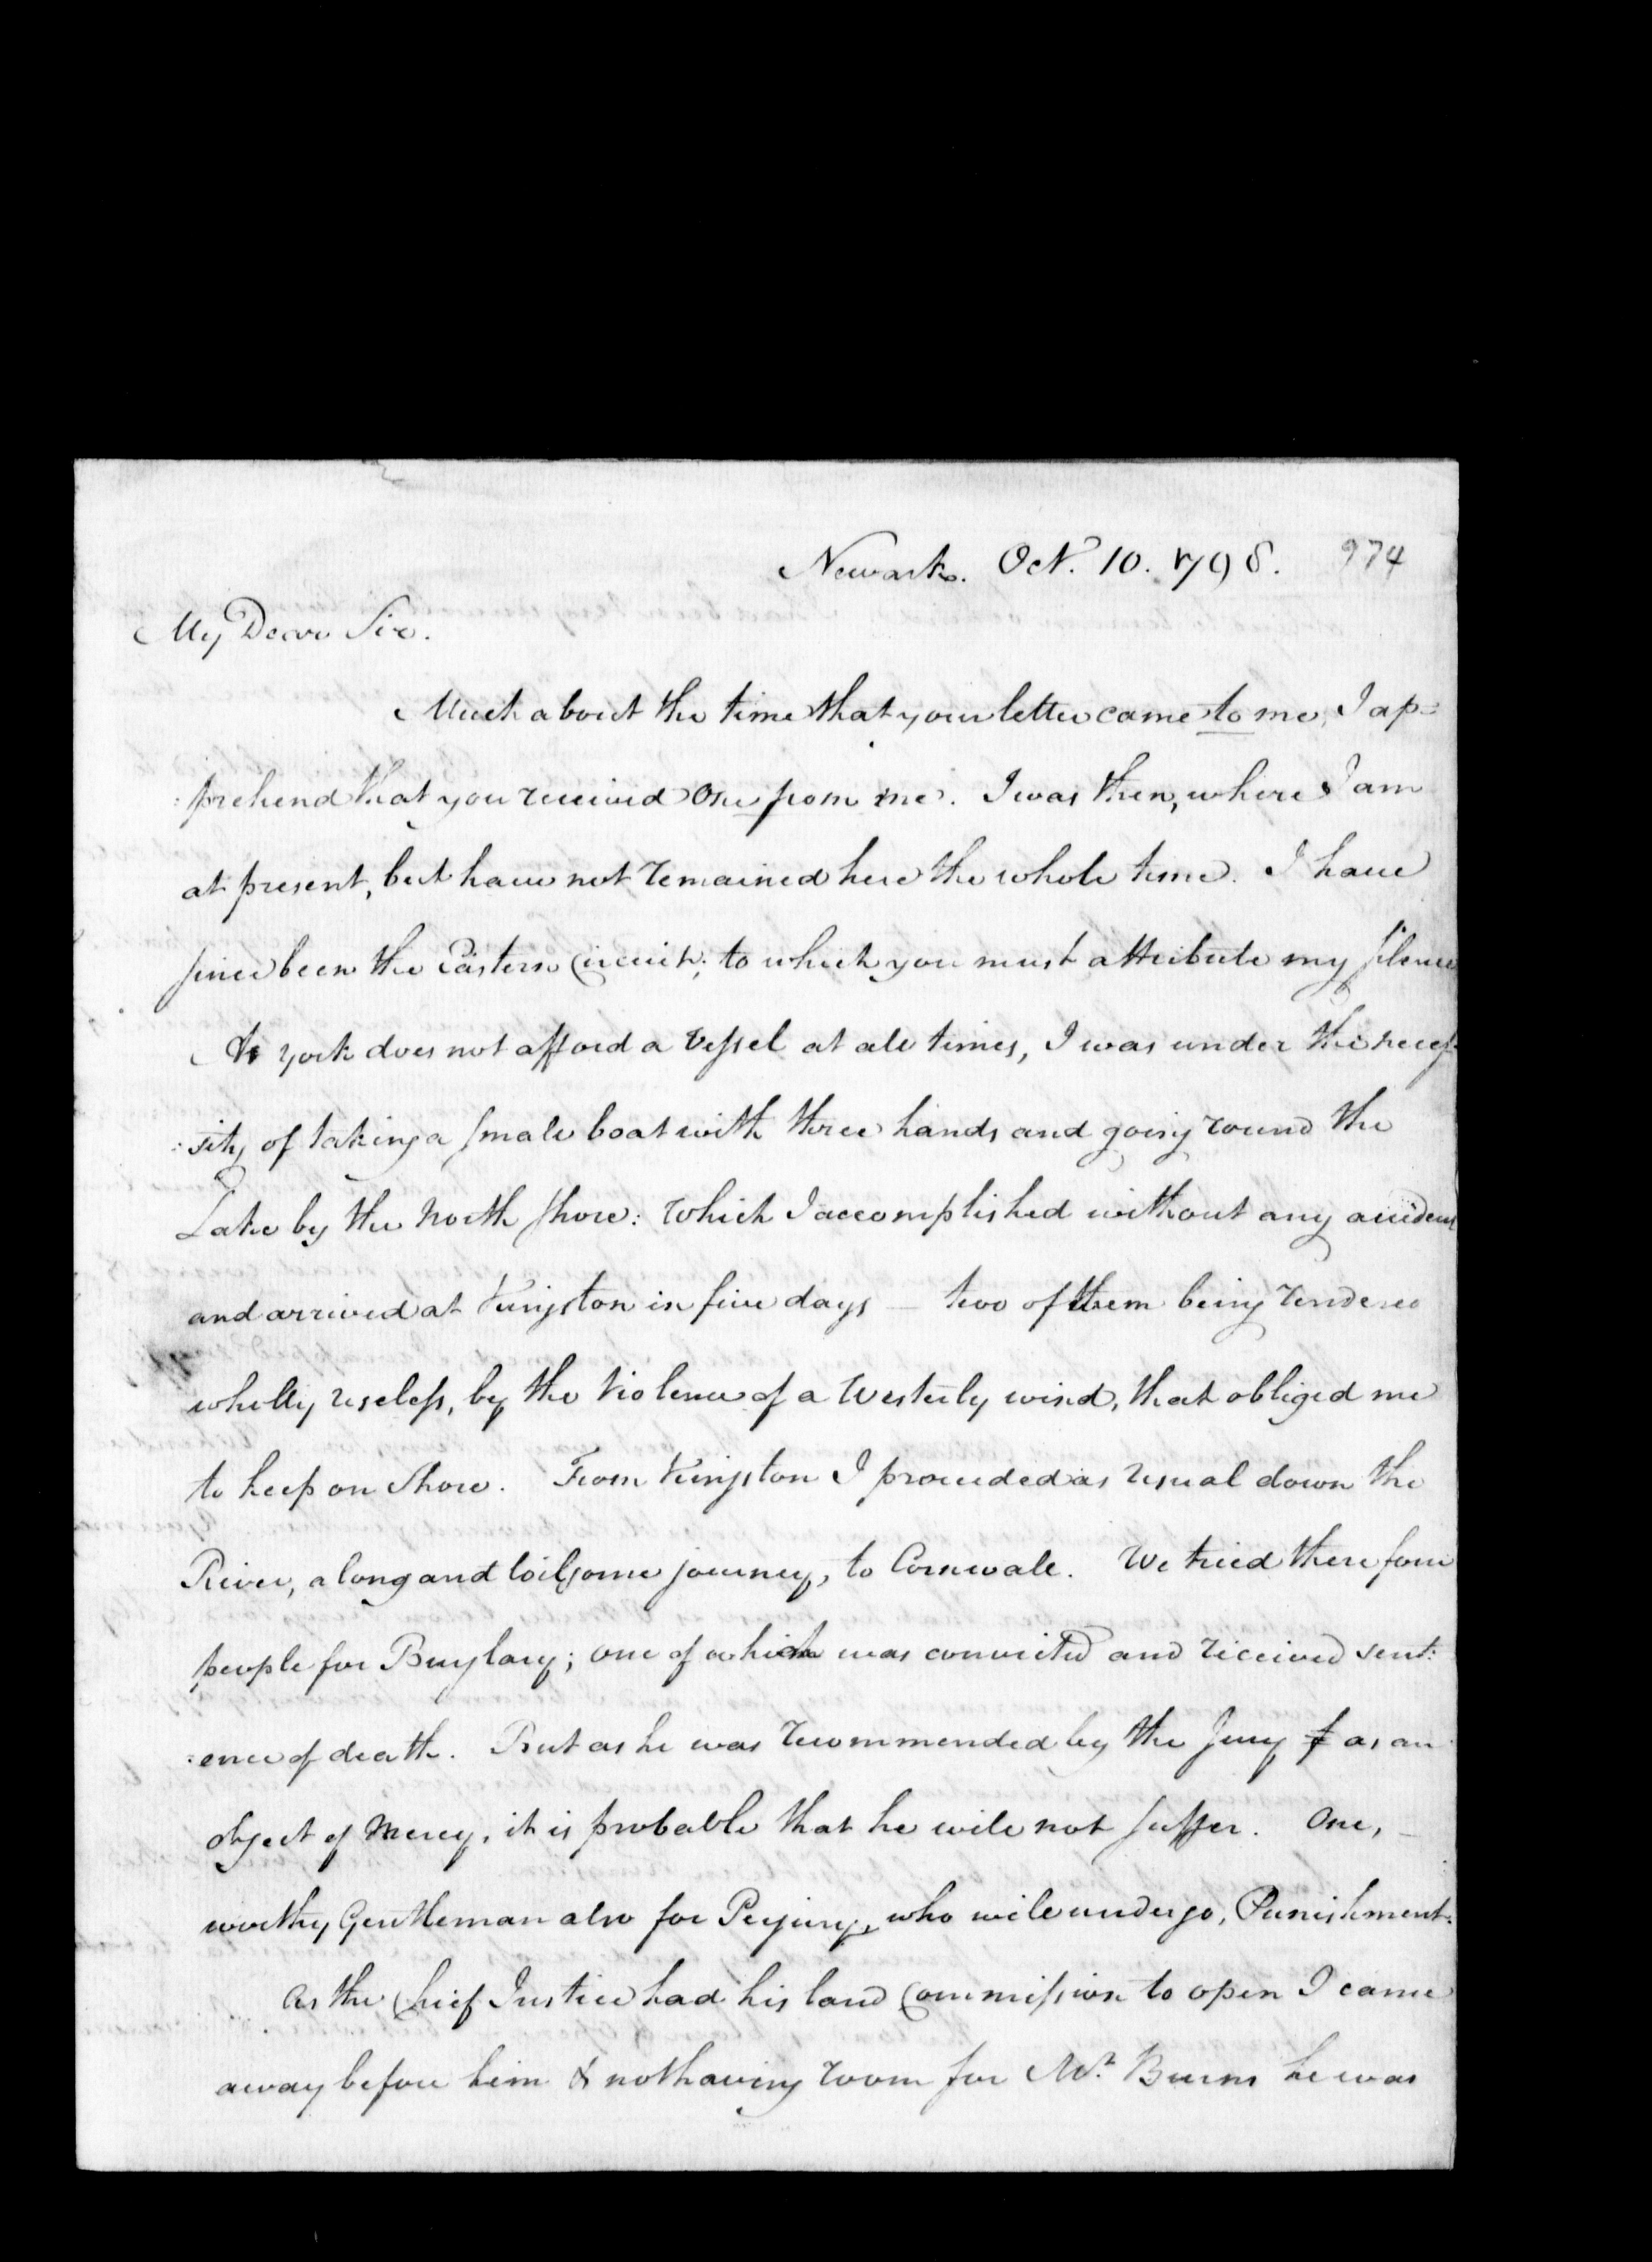 Newark. Oct. 10. 1798. 974
My Dear Sir.
Much about the time that your letter came to me, I ap=
:prehend that you received One from me. I was then, where I am
at present, but have not remained here the whole time. I have
since been the Eastern Circuit; to which you must attribute my silence
As York does not afford a Vessel at all times, I was under the neces
:sity of taking a small boat with three hands and going round the
Lake by the North Shore: which I accomplished without any accident
and arrived at Kingston in five days — two of them being rendered
wholly useless, by the Violence of a Westerly wind, that obliged me
to keep on Shore. From Kingston I proceeded as usual down the
River, a long and toilsome journey, to Cornwall. We tried there four
people for Burglary; one of which was convicted and received sent:
:ence of death. But as he was recommended by the Jury as an
object of Mercy, it is probable that he will not suffer. One,
worthy Gentleman also for Perjury, who will undergo, Punishment.
As the Chief Justice had his land Commission to open I came
away before him & not having room for Mr. Burns he was